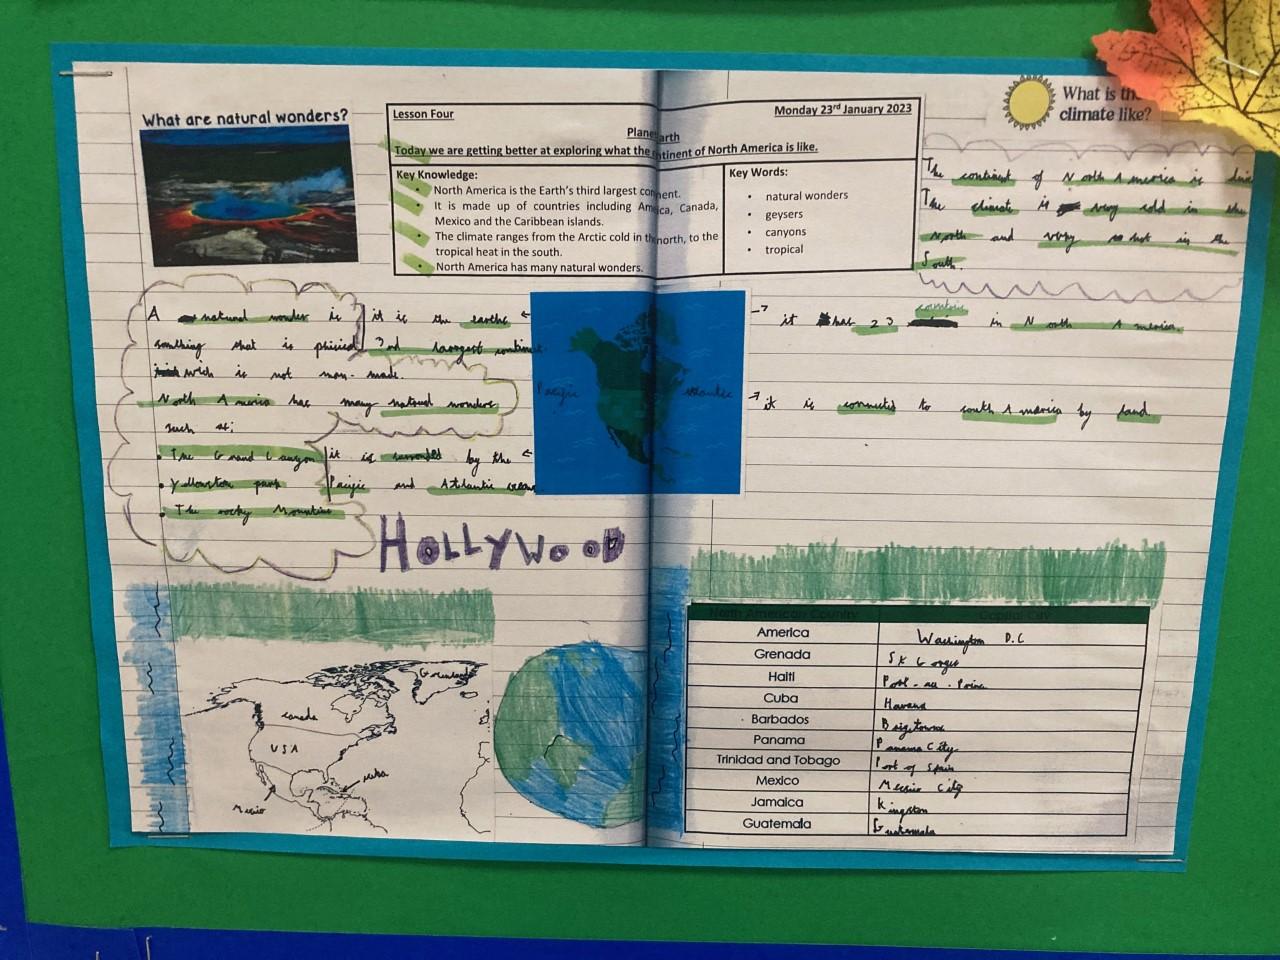 What are natural wonders?
Lesson Four
Monday 23rd January 2023
Plane Earth
Today we are getting better at exploring what the continent of North America is like.
Key Knowledge:
• North America is the Earth's third largest continent.
• It is made up of countries including America, Canada,
Mexico and the Caribbean islands.
• The climate ranges from the Arctic cold in the north, to the
tropical heat in the south.
• North America has many natural wonders.
Key Words:
• natural wonders
• geysers
• canyons
• tropical
What is the
climate like?
The continent of North America is
The climate is very cold in the
North and very hot in the
South.
A natural wonder is
somthing that is phisical
wich is not man-made.
North America has many natural wonders
such as:
• The Grand Canyon
• Yellowston park
• The rocky Mountins
it is the earths
3rd largest continent.
it is surronded by the
Pacific and Atlantic ocean
Pacific
Atlantic
it has 23 in North America.
it is connected to south America by land
HOLLYWOOD
Greenland
canada
USA
cuba
Mexico
North American Country Capital City
America Washington D.C
Grenada St Gorges
Haiti Port-au-Prince
Cuba Havana
Barbados
Panama Panama City
Trinidad and Tobago Port of Spain
Mexico Mexico City
Jamaica Kingston
Guatemala Guatemala